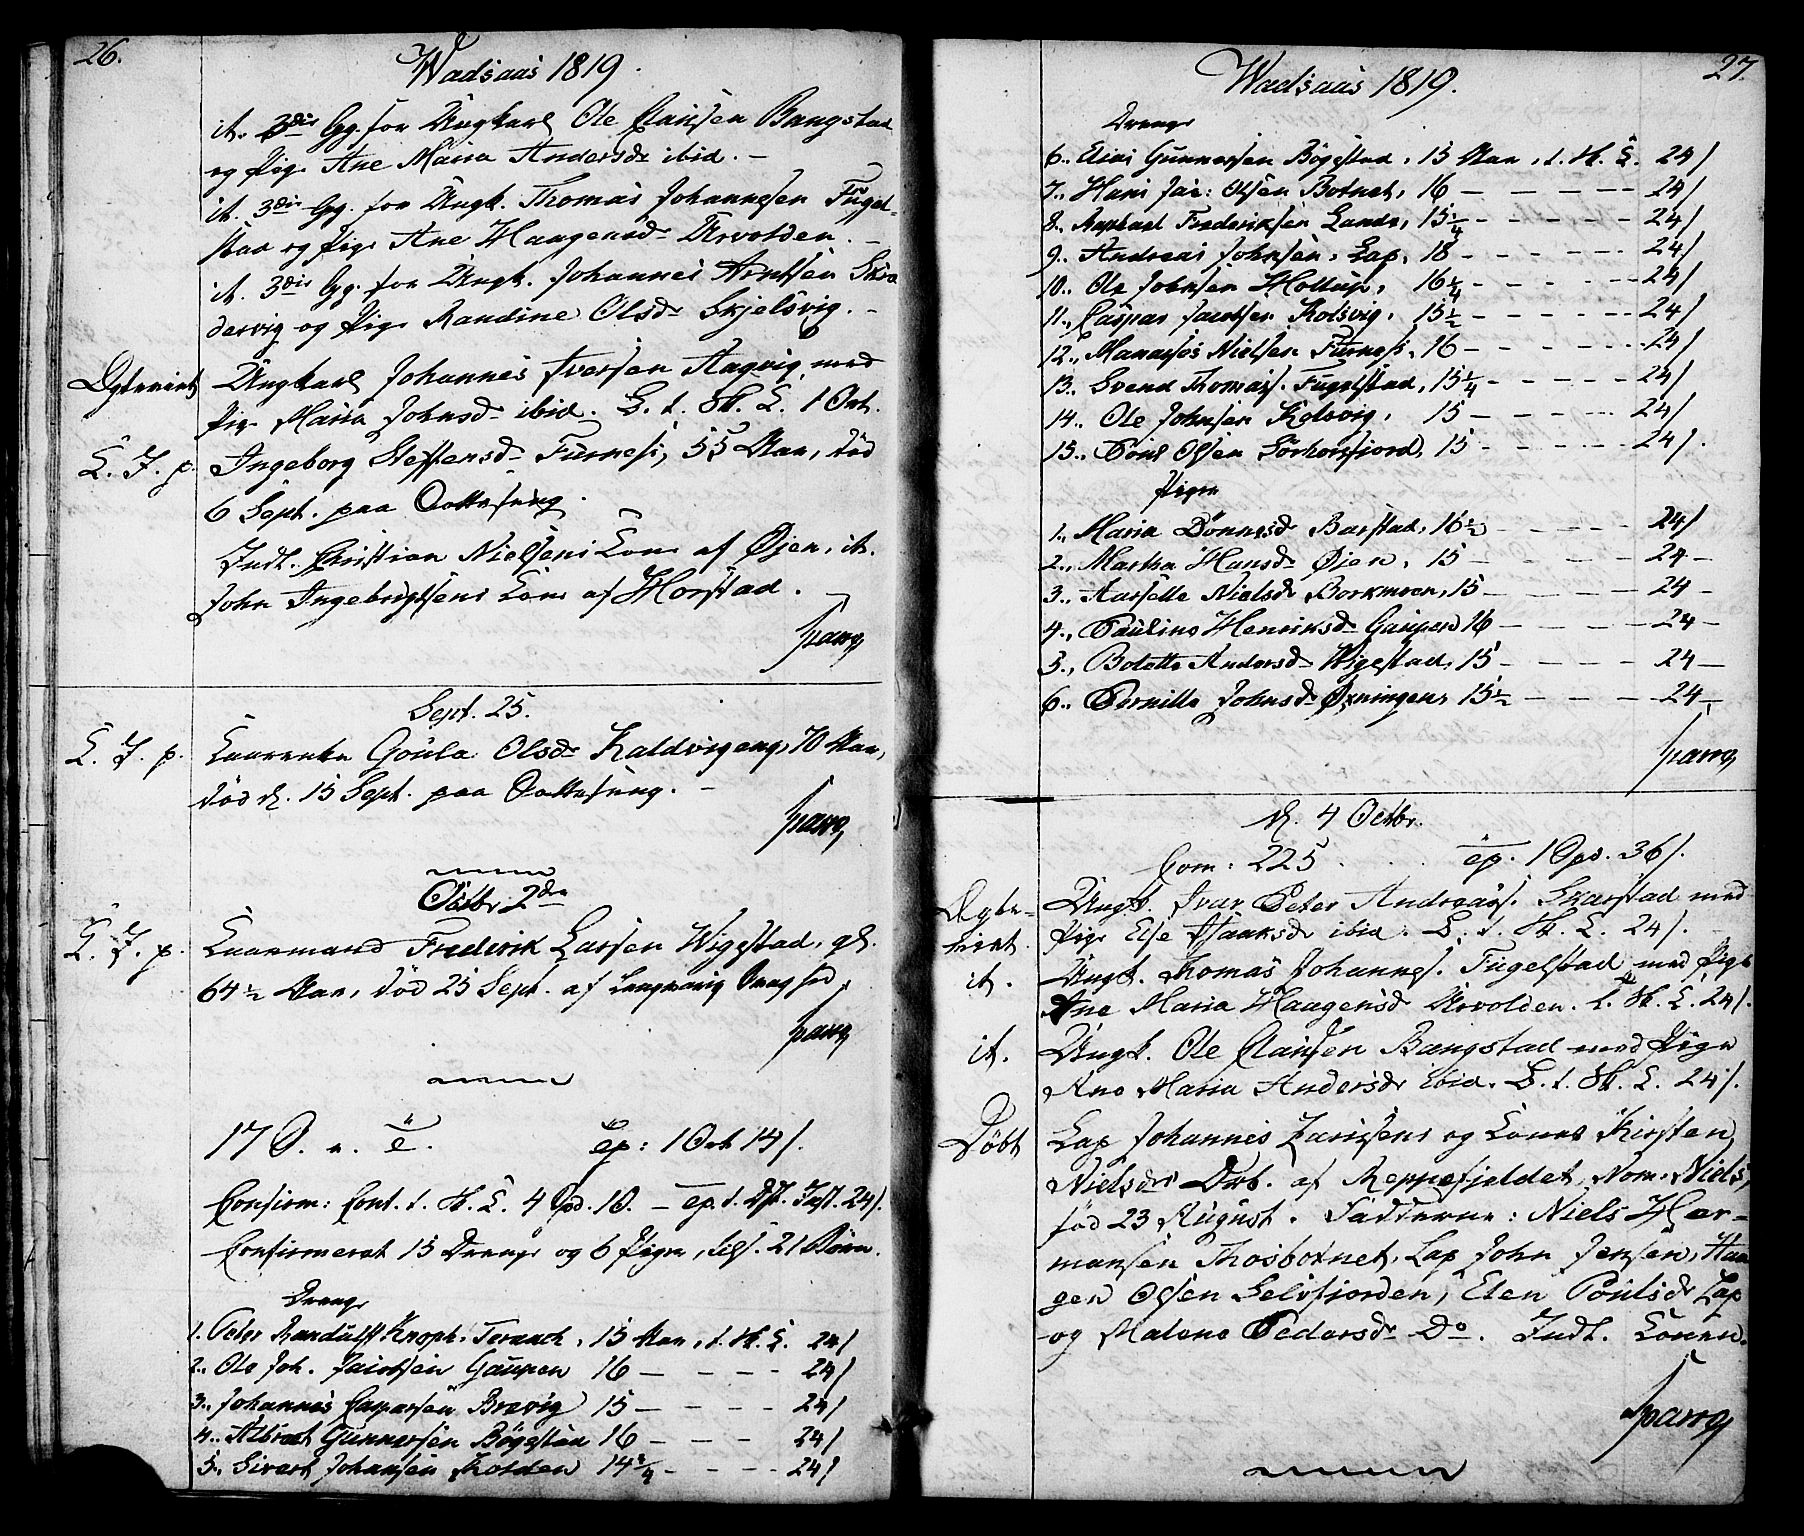 26.
Wadsaas 1819.
it. 3die Gg. for Ungkarl Ole Clausen Bangstad
og Pige Ane Maria Andersdr ibid. –
it. 3die Gg. for Ungk. Thomas Johannesen Fugel-
stad og Pige Ane Haagensdr Urvolden. –
it. 3die Gg. for Ungk. Johannes Arntsen
dervig og Pige Randine Olsdr Skjelsvig. –
Ungkarl Johannes Iversen Aagvig med
Pige Maria Johnsd ibid. B. t. H. S. 1 Ort.
S. J. p. Ingeborg Steffensd Furnes, 55 Aar, død
6 Sept. paa
Indl. Christian Nielsens Kone af Øjen, it.
John Ingebrigtsens Kone af Horstad.
Parrog
Sept. 25.
S. J. p. Gøula Olsdr Kaldvigeng, 70 Aar,
død d. 15 Sept. paa
Parrog
Octbr 2den
S. J. p. Frederik Larsen Wigestad, gl.
64½ Aar, død 25 Sept. af
Parrog
17 e. ep: 1 Ort 14/.
Confirm: Cont. t. H. S. 4 Spd. 10. – ep. t. Inst. 24/.
Confirmeret 15 Drenge og 6 Piger, tils. 21 Børn.
Drenge
1. Peter Randulff Knoph, 15 Aar, t. H. S. 24/
2., Ole Joh. Jacobsen Gaupen 16 – – – – 24/
3., Johannes Caspersen Brevig 15 – – – – 24/
4., Albret Gunnersen Bøgestad 16 – – – 24/
5., Sivert Johansen Kolden 14¾ – – – – 24/
27.
Wadsaas 1819.
Drenge
6., Elias Gunnersen Bøgestad, 15 Aar, t. H. S. 24/
7., Hans Jac: Olsen Botnet, 16 – – – – – 24/
8., Raphael Frederiksen Lande, 15¼ – – – 24/
9., Andreas Johnsen, Lap, 18 – – – – 24/
10., Ole Johnsen Hollup, 16¼ – – – – 24/
11., Caspar Jacobsen Kolsvig, 15½ – – – – 24/
12., Manasses Nielsen Furnes, 16 – – – – 24/
13., Svend Thomass. Fugelstad, 15¼ – – – – 24/
14., Ole Johnsen Kolsvig, 15 – – – – 24/
15., Poul Olsen Sørhorsfjord, 15 – – – – 24/.
Piger
1., Maria Dønnesdr Barstad, 16½ – – – – 24/
2., Martha Hansdr Øjen, 15 – – – – 24 –
3., Aaselle Nielsdr Borkmoen, 15 – – – – 24 –
4., Pauline Henriksdr Gaupen 16 – – – – 24 –
5., Bolette Andersdr Wigestad, 15 – – – – 24 –
6., Pernille Johnsdr Øxningen, 15½ – – – – 24 –
Parrog
d. 4 Octbr.
Com: 225. ep. 1 Spd. 36/.
Ungk. Ivar Peter Andreass. Skarstad med
Pige Else Isaaksdr ibid. B. t. H. S. 24/.
it. Ungk. Thomas Johannes. Fugelstad med Pige
Ane Maria Haagensd Urvolden. t. H. S. 24/.
it. Ungk. Ole Clausen Bangstad med Pige
Ane Maria Andersdr ibid. B. t. H. S. 24/.
Døbt Lap Johannes Zarisens og Kones Kirsten
Nielsdrs Drb. af Reppesfjeldet, Nom: Niels,
fød 23 August. Fadderne: Niels Her-
mansen Thosbotnet, Lap John Jensen, Haa
gen Olsen Selvfjorden, Elen Poulsdr Lap
og Malene Pedersdr Do. Indl. Konen.
Parrog